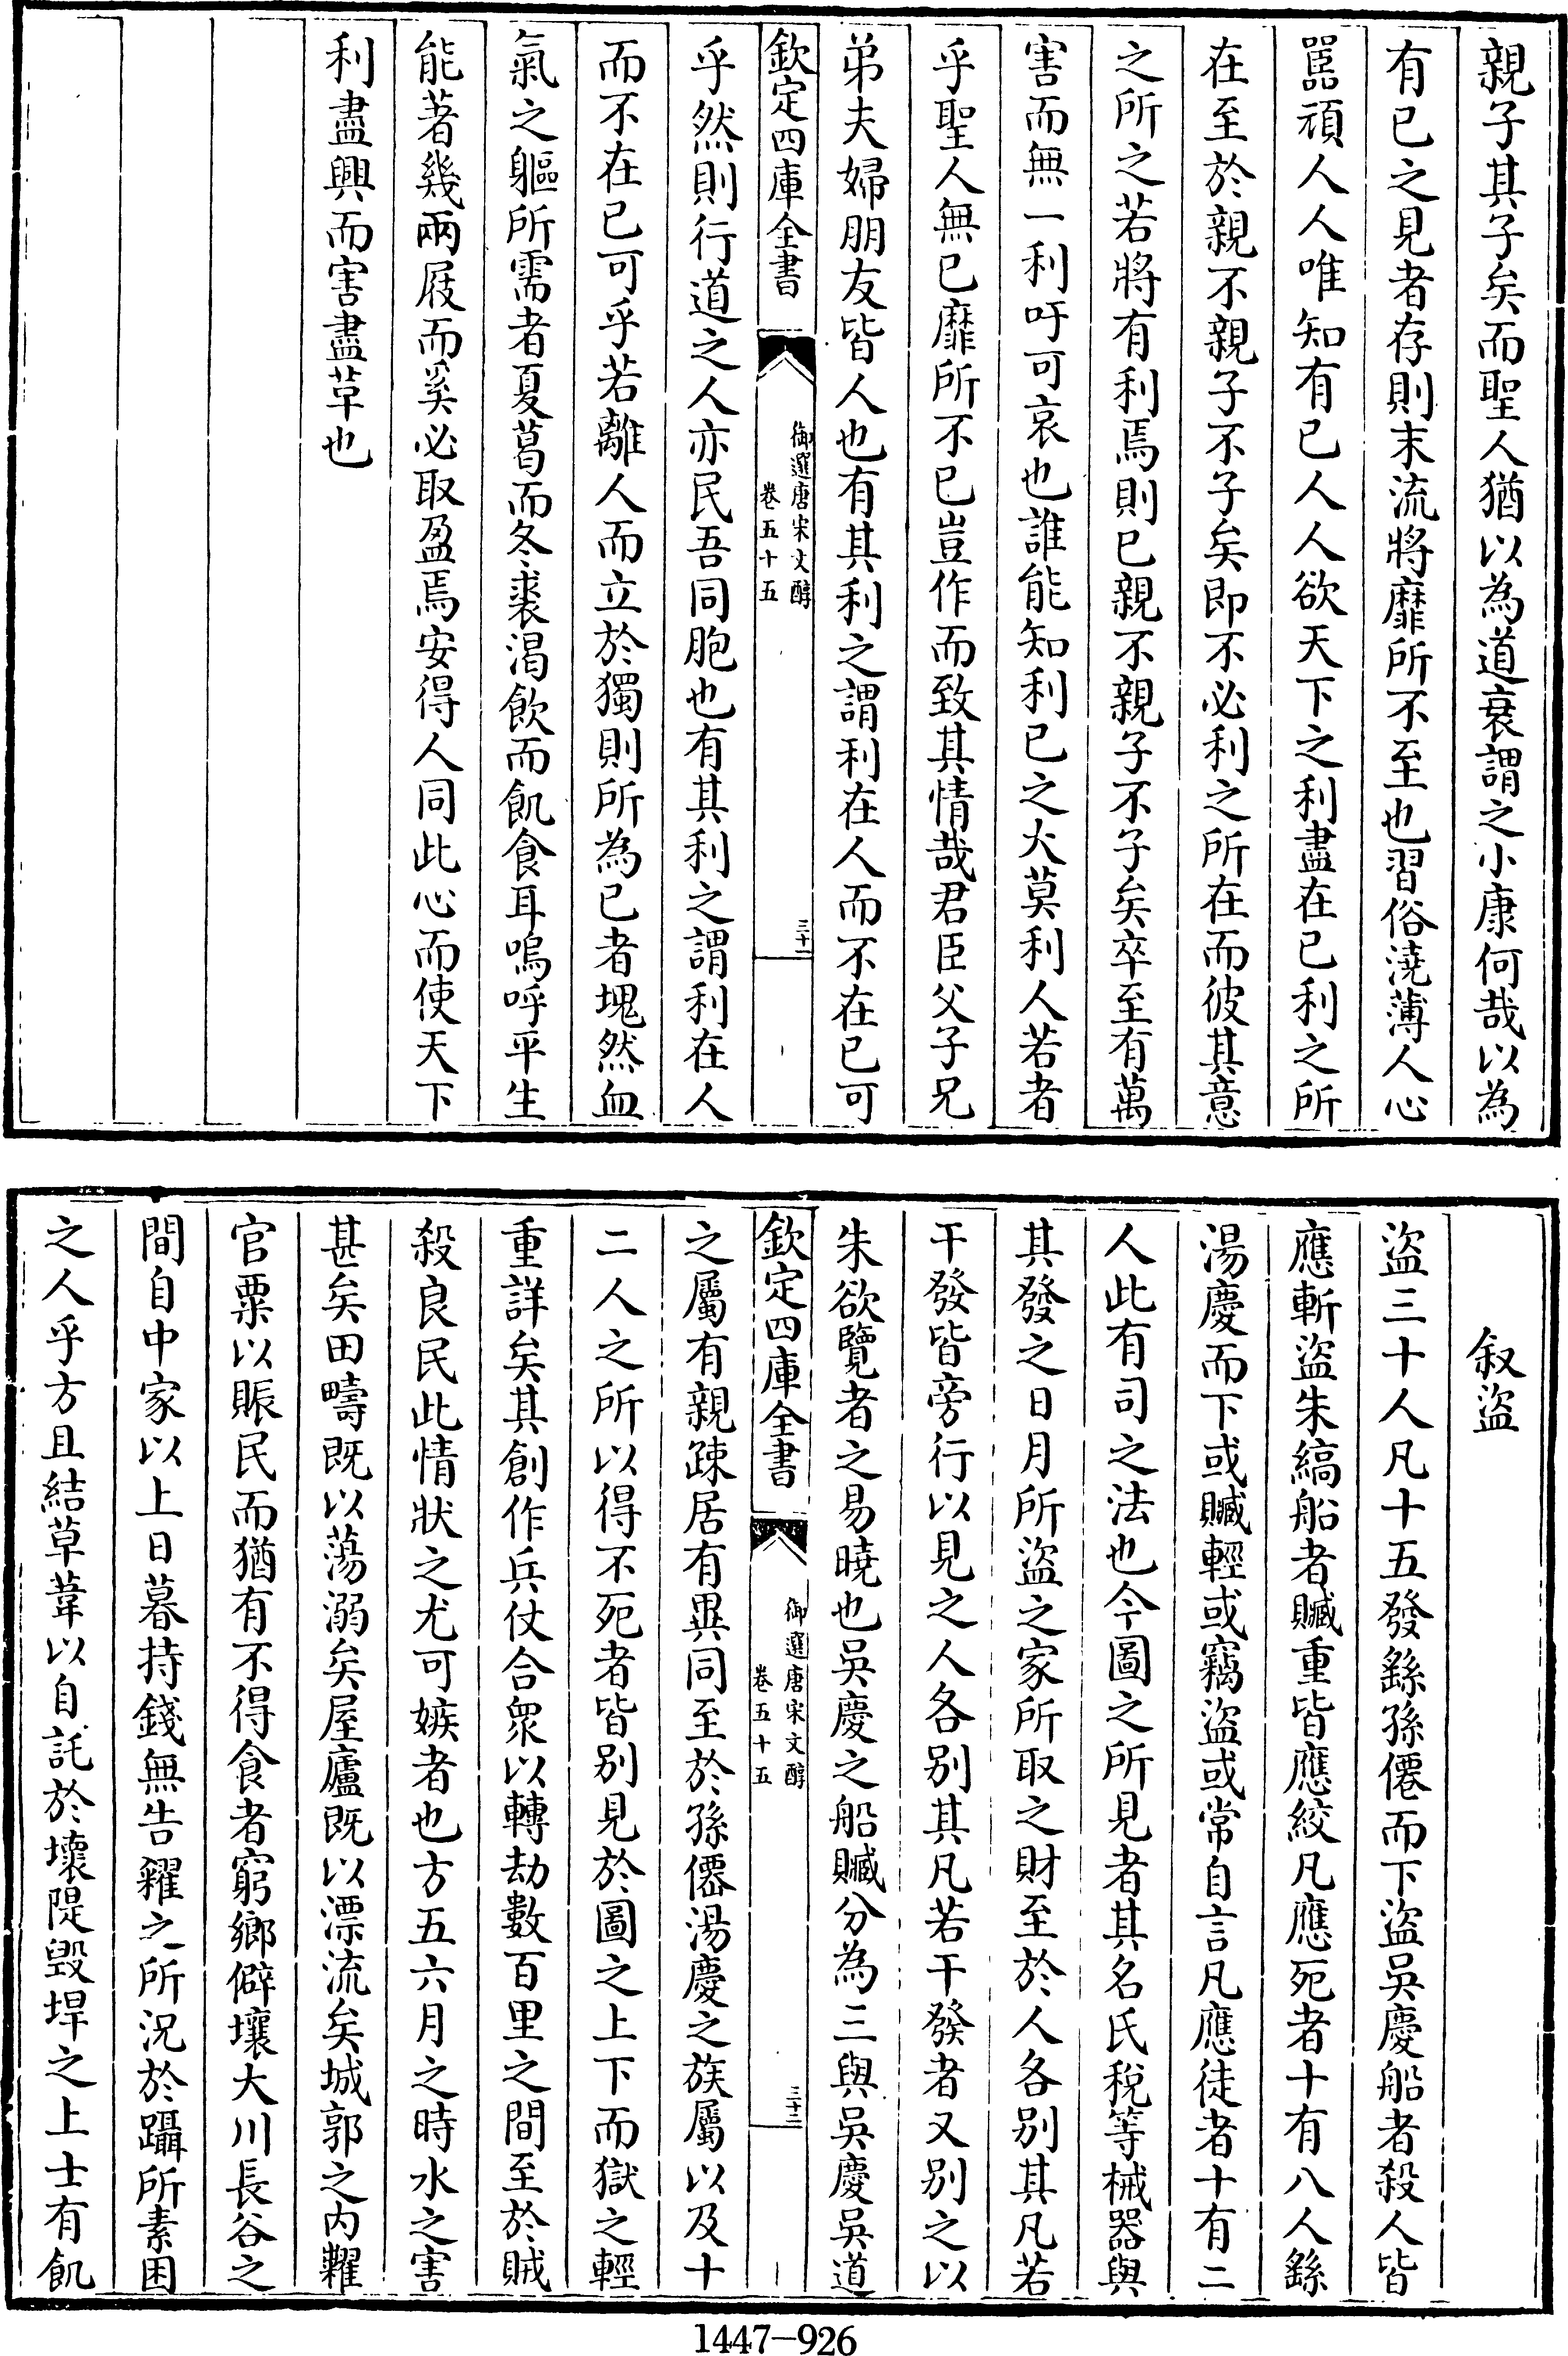 親子其子矣而聖人猶以為道衰謂之小康何哉以為
有已之見者存則末流將靡所不至也習俗澆薄人心
嚚頑人人唯知有已人人欲天下之利盡在已利之所
在至於親不親子不子矣即不必利之所在而彼其意
之所之若將有利焉則已親不親子不子矣卒至有萬
害而無一利吁可哀也誰能知利已之大莫利人若者
乎聖人無已靡所不已豈作而致其情哉君臣父子兄
弟夫婦朋友皆人也有其利之謂利在人而不在已可
欽定四庫全書
御選唐宋文醇
卷五十五
三十一
乎然則行道之人亦民吾同胞也有其利之謂利在人
而不在已可乎若離人而立於獨則所為已者塊然血
氣之軀所需者夏葛而冬裘渴飲而飢食耳嗚呼平生
能著幾兩屐而奚必取盈焉安得人同此心而使天下
利盡興而害盡草也
叙盜
盜三十人凡十五發繇孫僊而下盜吳慶船者殺人皆
應斬盜朱縞船者贓重皆應絞凡應死者十有八人繇
湯慶而下或贓輕或竊盜或常自言凡應徒者十有二
人此有司之法也今圖之所見者其名氏稅等械器與
其發之日月所盜之家所取之財至於人各別其凡若
干發皆旁行以見之人各別其凡若干發者又別之以
朱欲覽者之易曉也吳慶之船贓分為三與吳慶吳道
欽定四庫全書
御選唐宋文醇
卷五十五
三十二
之屬有親疎居有異同至於孫僊湯慶之族屬以及十
二人之所以得不死者皆別見於圖之上下而獄之輕
重詳矣其創作兵仗合衆以轉劫數百里之間至於賊
殺良民此情狀之尤可嫉者也方五六月之時水之害
甚矣田疇既以蕩溺矣屋廬既以漂流矣城郭之內糶
官粟以賑民而猶有不得食者窮鄉僻壤大川長谷之
間自中家以上日暮持錢無告糴之所況於躡所素困
之人乎方且結草葦以自託於壞隄毀垾之上士有飢
1447-926